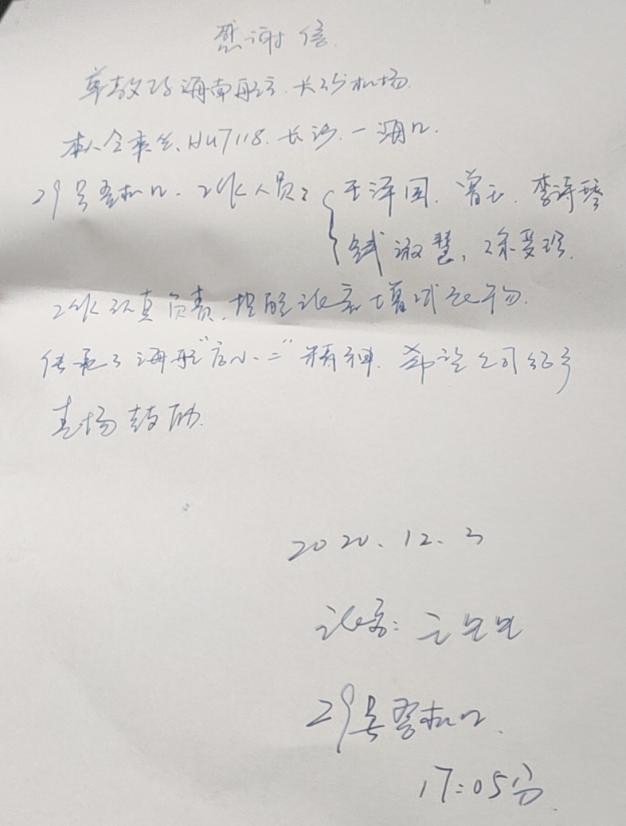 感谢信
尊敬的海南航空、长沙机场
本人今乘坐 HU7118 长沙—海口
29号登机口、工作人员:
王泽国、曾云、李诗琴
淑慧、
工作认真负责、提醒旅客
传承了海航"店小二"精神、希望公司给予
表扬鼓励.
2020.12.3
旅客: 先生
29号登机口
17:05分